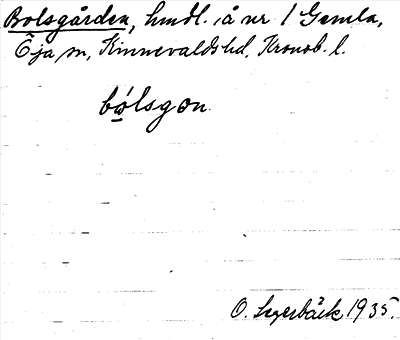 Bolsgården, hmdl. å nr 1 Gemla,
Öja sn, Kinnevalds hd, Kronob. l.
bólsgon
O. Lagerbäck 1935.